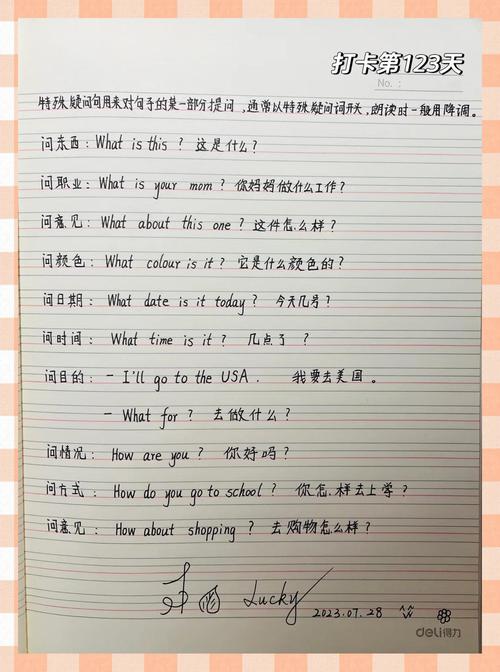 打卡第123天
No. :
特殊疑问句用来对句子的某一部分提问，通常以特殊疑问词开头，朗读时一般用降调。
问东西：What is this ? 这是什么？
问职业：What is your mom ? 你妈妈做什么工作？
问意见：What about this one ? 这件怎么样？
问颜色：What colour is it ? 它是什么颜色的？
问日期：What date is it today ? 今天几号？
问时间：What time is it ? 几点了 ？
问目的：- I'll go to the USA . 我要去美国。
- What for ? 去做什么？
问情况：How are you ? 你好吗？
问方式：How do you go to school ? 你怎样去上学？
问意见：How about shopping ? 去购物怎么样？
Lucky 2023.07.28
deli得力